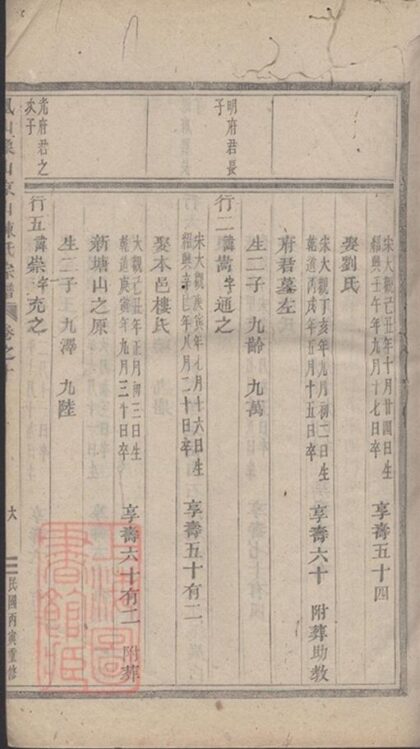 宋大觀己丑年十月廿四日生
紹興壬午年九月十七日卒 享壽五十四
娶劉氏
宋大觀丁亥年九月初二日生
乾道丙戌年五月十五日卒 享壽六十 附葬助教
府君墓左
生二子 九齡 九萬
明府君長
子
行二 諱嵩字通之
宋大觀庚寅年九月十六日生
紹興辛巳年八月二十日卒 享壽五十有二
娶本邑樓氏
大觀己丑年正月初三日生
乾道庚寅年九月三十日卒 享壽六十有二 附葬
新塘山之原
生二子 九澤 九陸
光府君之
次子
行五 諱崇字充之
陳氏宗譜 卷之
民國丙寅重修
圖
書館